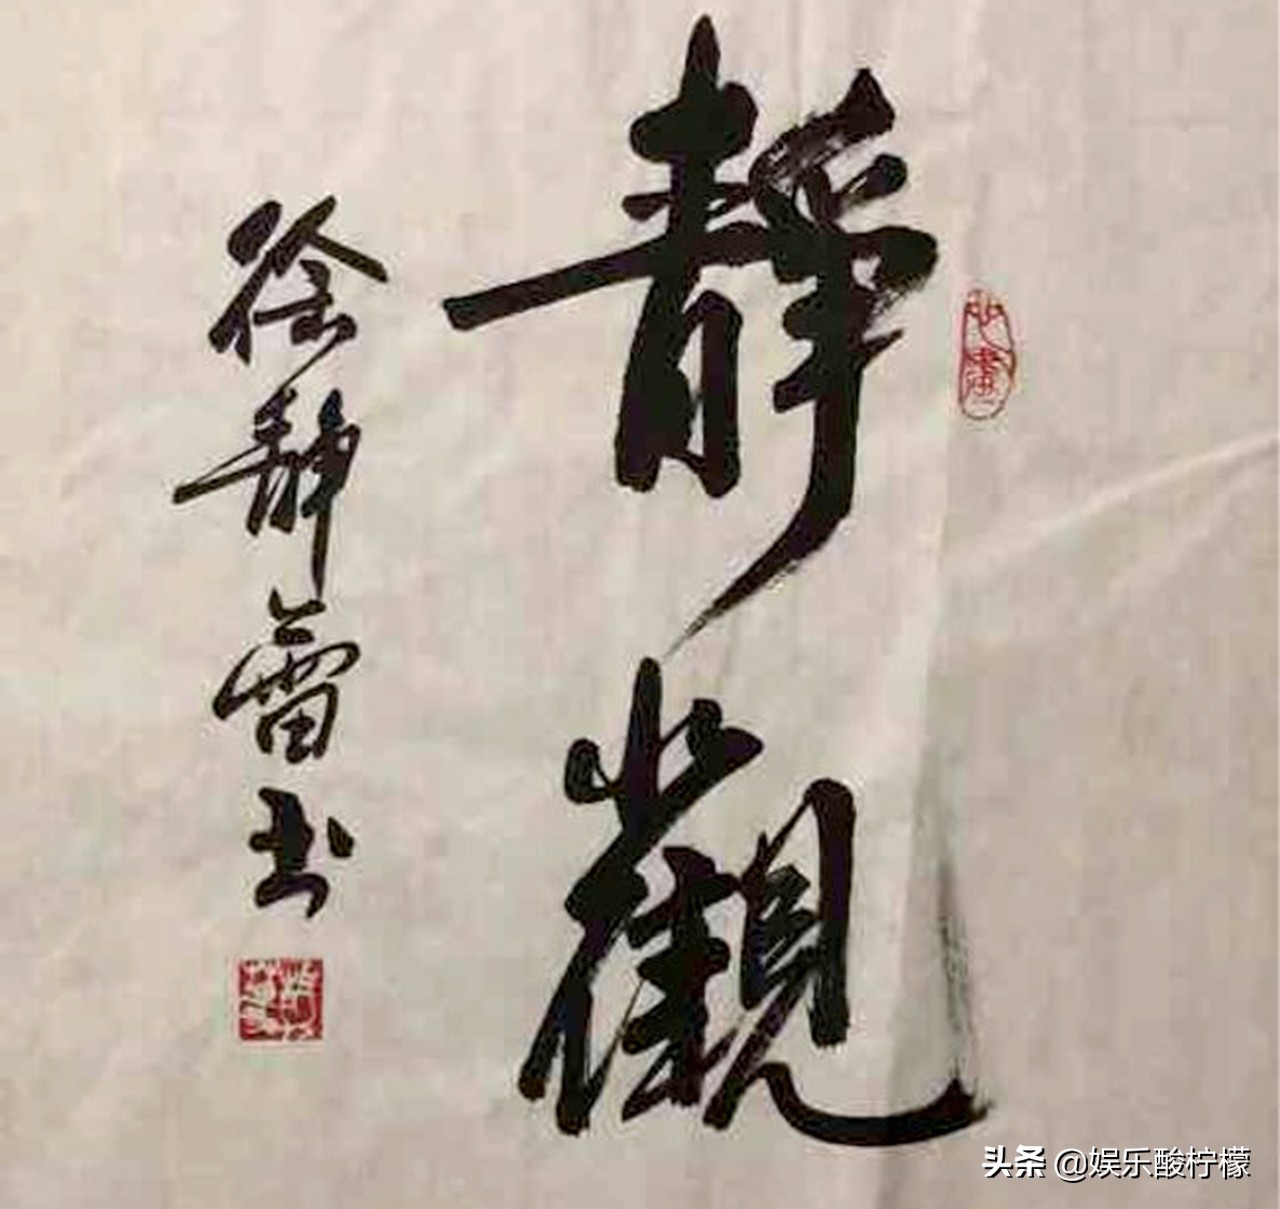 靜觀
徐静蕾书
头条 @娱乐酸柠檬